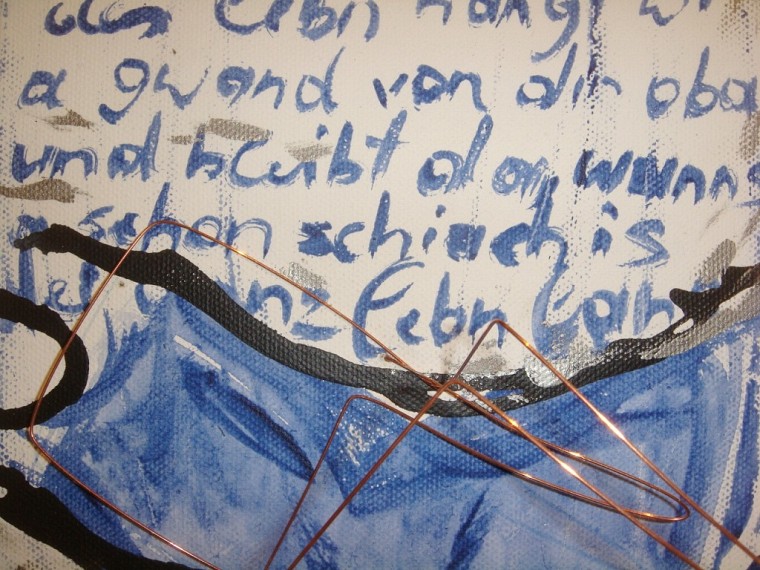 das Lebn hängt wi
a gwand von dir oba
und bleibt do wanns
a schon schiach is
ganz Lebn lang